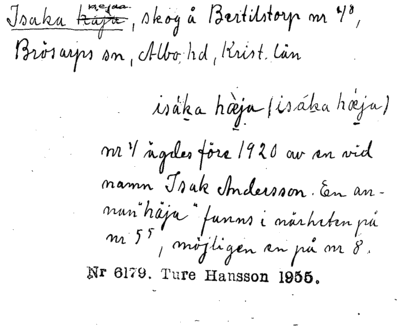 Isaka häjaa, skog å Bertilstorp nr 4⁸,
Brösarps sn, Albo hd, Krist. län
isáka hæ̀ja (isáka hǽja)
nr 4 ägdes före 1920 av en vid
namn Isak Andersson. En an-
nan "häja" fanns i närheten på
nr 5⁵, möjligen en på nr 8.
Nr 6179. Ture Hansson 1955.